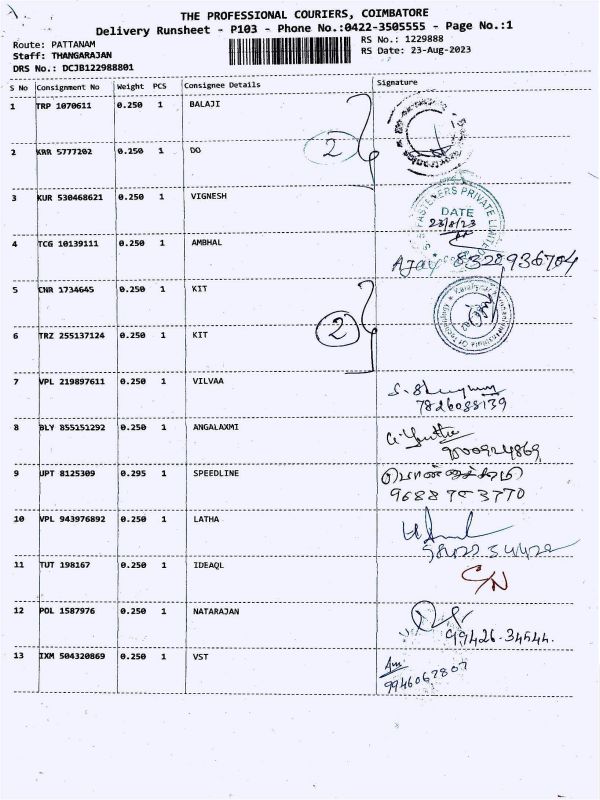 THE PROFESSIONAL COURIERS, COIMBATORE
Delivery Runsheet - P103 - Phone No.:0422-3505555 - Page No.:1
Route: PATTANAM RS No.: 1229888
Staff: THANGARAJAN RS Date: 23-Aug-2023
DRS No.: DCJB122988801
S No Consignment No Weight PCS Consignee Details Signature
1 TRP 1070611 0.250 1 BALAJI
2 KRR 5777202 0.250 1 DO 2
3 KUR 530468621 0.250 1 VIGNESH
FASTENERS PRIVATE LIMITED
DATE
23/8/23
4 TCG 10139111 0.250 1 AMBHAL
Ajay 8328936704
5 CNR 1734645 0.250 1 KIT
6 TRZ 255137124 0.250 1 KIT 2
7 VPL 219897611 0.250 1 VILVAA
7826088139
8 BLY 855151292 0.250 1 ANGALAXMI
9000924869
9 JPT 8125309 0.295 1 SPEEDLINE
9688753770
10 VPL 943976892 0.250 1 LATHA
11 TUT 198167 0.250 1 IDEAQL C/N
12 POL 1587976 0.250 1 NATARAJAN
99426-34544.
13 IXM 504320869 0.250 1 VST
9946062807